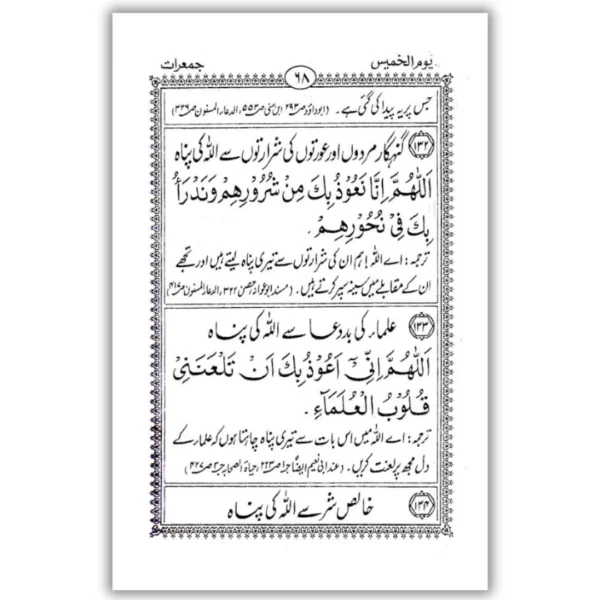 یوم الخمیس ۶۸ جمعرات
جس پر یہ پیدا کی گئی ہے۔ (ابوداؤد ص۲۹۳، ابن سنی ص۵۵۳، الدعاء المسنون ص۳۲۶)
۱۳۲ گنہگار مردوں اور عورتوں کی شرارتوں سے اللہ کی پناہ
اَللّٰهُمَّ اِنَّا نَعُوْذُ بِكَ مِنْ شُرُوْرِهِمْ وَنَدْرَأُ
بِكَ فِيْ نُحُوْرِهِمْ۔
ترجمہ: اے اللہ! ہم ان کی شرارتوں سے تیری پناہ لیتے ہیں اور تجھے
ان کے مقابلے میں سینہ سپر کرتے ہیں۔ (مسند ابو عوانہ ۳۲۲، الدعاء المسنون ص۴۱۷)
۱۳۳ علماء کی بددعا سے اللہ کی پناہ
اَللّٰهُمَّ اِنِّيْ اَعُوْذُ بِكَ اَنْ تَلْعَنَنِيْ
قُلُوْبُ الْعُلَمَاءِ۔
ترجمہ: اے اللہ میں اس بات سے تیری پناہ چاہتا ہوں کہ علماء کے
دل مجھ پر لعنت کریں۔ (عند ابی نعیم ایضاً ص۲۲۳، حیاۃ الصحابہ ص۴۲۷)
۱۳۴ خالص شر سے اللہ کی پناہ